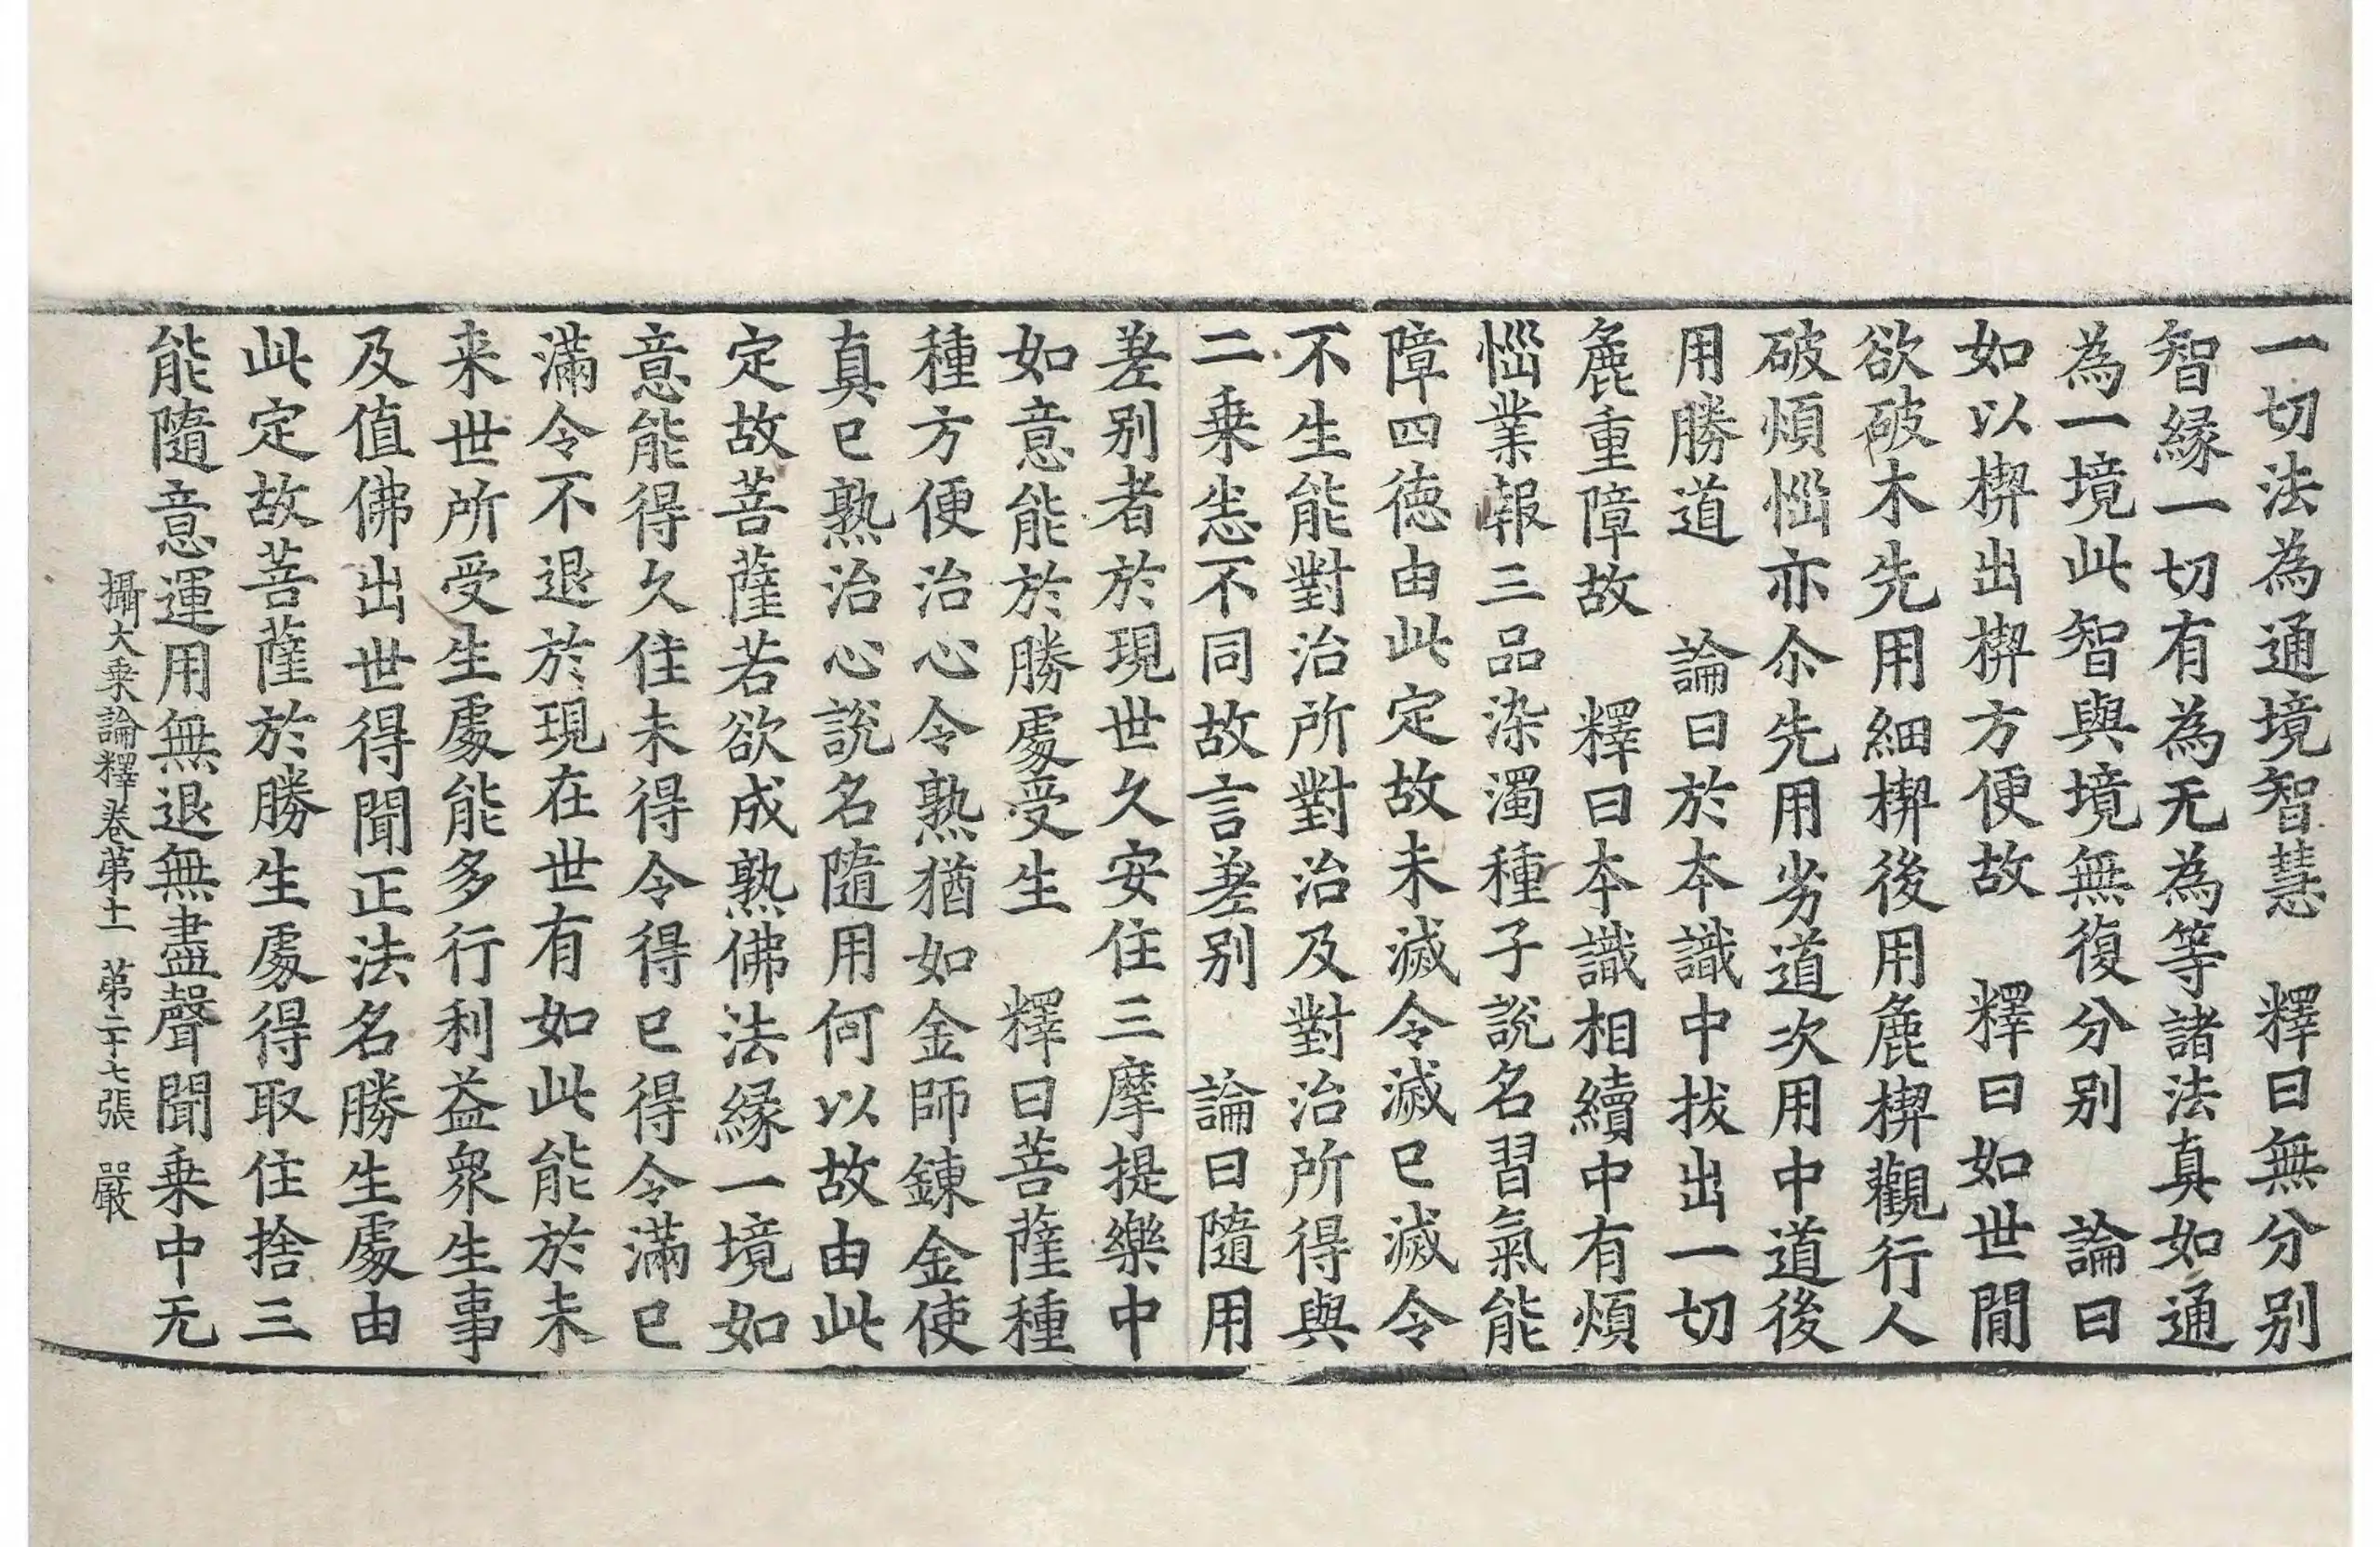 一切法為通境智慧　釋曰無分别
智縁一切有為无為等諸法真如通
為一境此智與境無復分别　論曰
如以楔出楔方便故　釋曰如世間
欲破木先用細楔後用麁楔觀行人
破煩惱亦尒先用劣道次用中道後
用勝道　論曰於本識中拔出一切
麁重障故　釋曰本識相續中有煩
惱業報三品染濁種子說名習氣能
障四德由此定故未滅令滅已滅令
不生能對治所對治及對治所得與
二乗悉不同故言差别　論曰隨用
差别者於現世久安住三摩提樂中
如意能於勝處受生　釋曰菩薩種
種方便治心令熟猶如金師鍊金使
真已熟治心說名隨用何以故由此
定故菩薩若欲成熟佛法縁一境如
意能得久住未得令得已得令滿已
滿令不退於現在世有如此能於未
来世所受生處能多行利益衆生事
及值佛出世得聞正法名勝生處由
此定故菩薩於勝生處得取住捨三
能隨意運用無退無盡聲聞乗中无
攝大乗論釋卷第十一　第二十七張　嚴